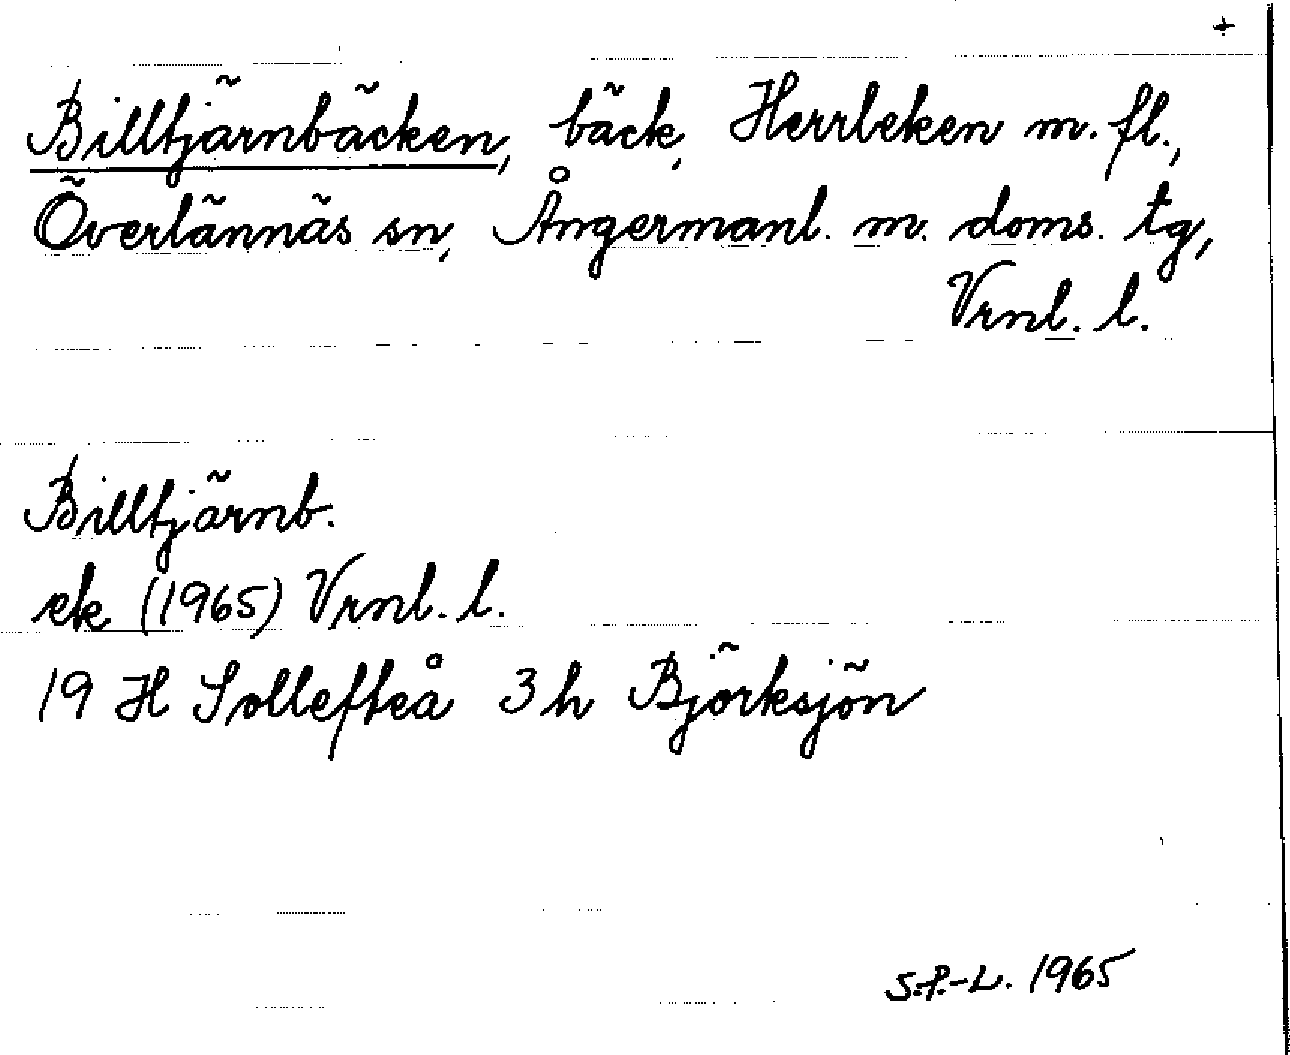 +
Billtjärnbäcken, bäck, Herrleken m. fl.,
Överlännäs sn, Ångermanl. m. doms. tg,
Vrnl. l.
Billtjärnb.
ek (1965) Vrnl. l.
19 H Sollefteå 3h Björksjön
S.P.-L. 1965